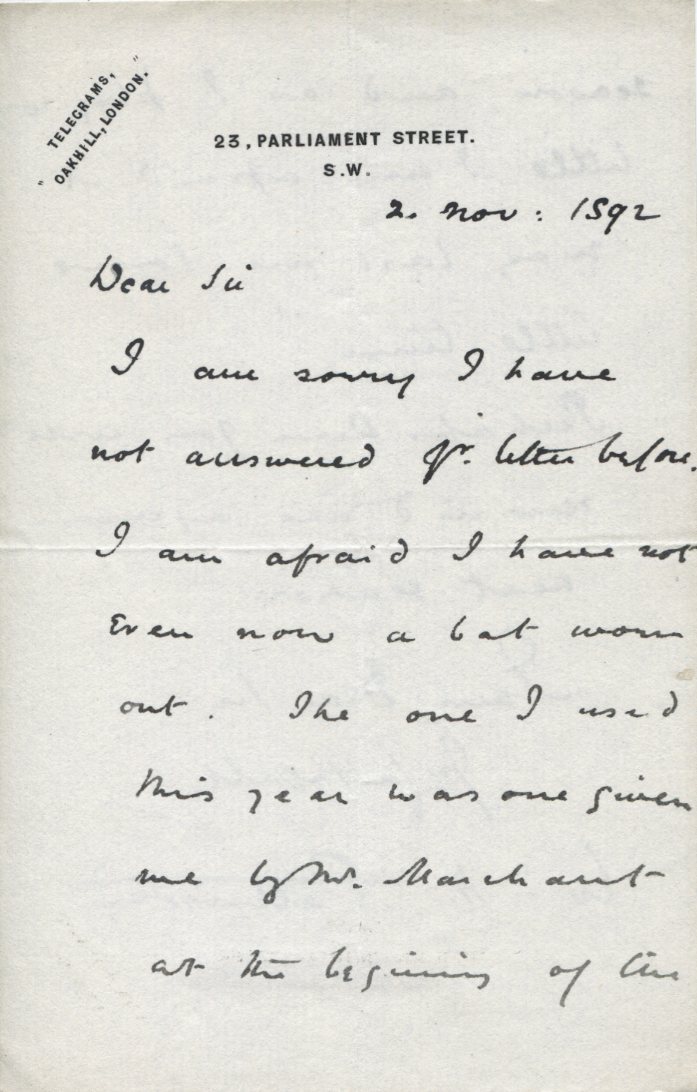 " TELEGRAMS,
OAKHILL, LONDON. "
23, PARLIAMENT STREET.
S.W.
2. Nov: 1892
Dear Sir
I am sorry I have
not answered yr. letter before.
I am afraid I have not
even now a bat worn
out. The one I used
this year was one given
me by Mr. Marchant
at the begining of the